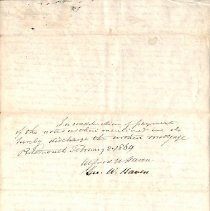 In consideration of payment
of the note within mentioned we do
hereby discharge the within mortgage
Portsmouth February 2 1864
Alfred W. Haven
Geo. W. Haven